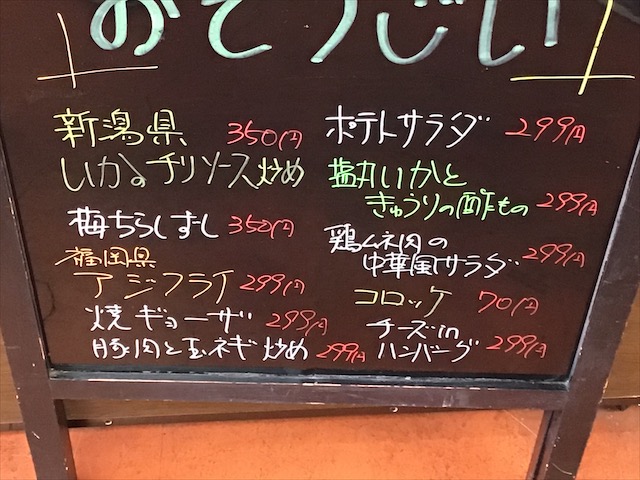 おそうざい
新潟県 350円
いかのチリソース炒め
梅ちらしずし 350円
福岡県
アジフライ 299円
焼ギョーザ 299円
豚肉と玉ネギ炒め 299円
ポテトサラダ 299円
塩丸いかと
きゅうりの酢もの 299円
鶏ムネ肉の
中華風サラダ 299円
コロッケ 70円
チーズin
ハンバーグ 299円